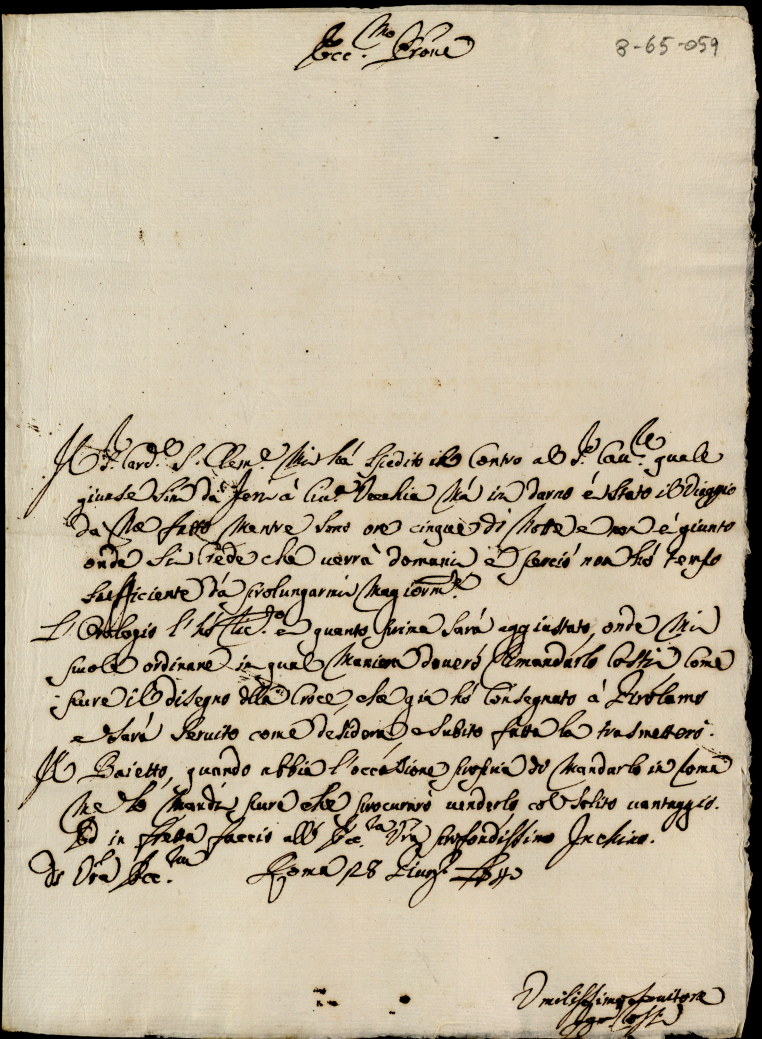 Ecc.mo Prone
8-65-059
Il Sr. Card.e S. Clem.e Mi há spedito il Contro al Sr. Cau.re quale
giunse sin dá Ieri á Ciu.a Vecchia Má in darno é stato il Viaggio
da Me fatto Mentre sono ore cinque di Notte e non é giunto
onde si Crede che uerrá domani e perció non hó tempo
sufficiente dá prolungarmi Magiorm.te
L'Orologio l'hó e quanto prima sará aggiustato, onde Mi
puole ordinare in qual Maniera doueró Rimandarlo Costi Come
pure il disegno della Croce, che giá hó Consegnato á Girolamo
e sará seruito come desidera e subito fatta la trasmetteró.
Il Baietto, quando abbia l'occasione propria di Mandarlo in Roma
Me lo Mandi pure che procureró uenderlo col solito uantaggio.
Ed in fretta faccio all' Ecc.za Vra profondissimo Inchino.
Di Vra Ecc.za Roma 28
Umilissimo seruitore